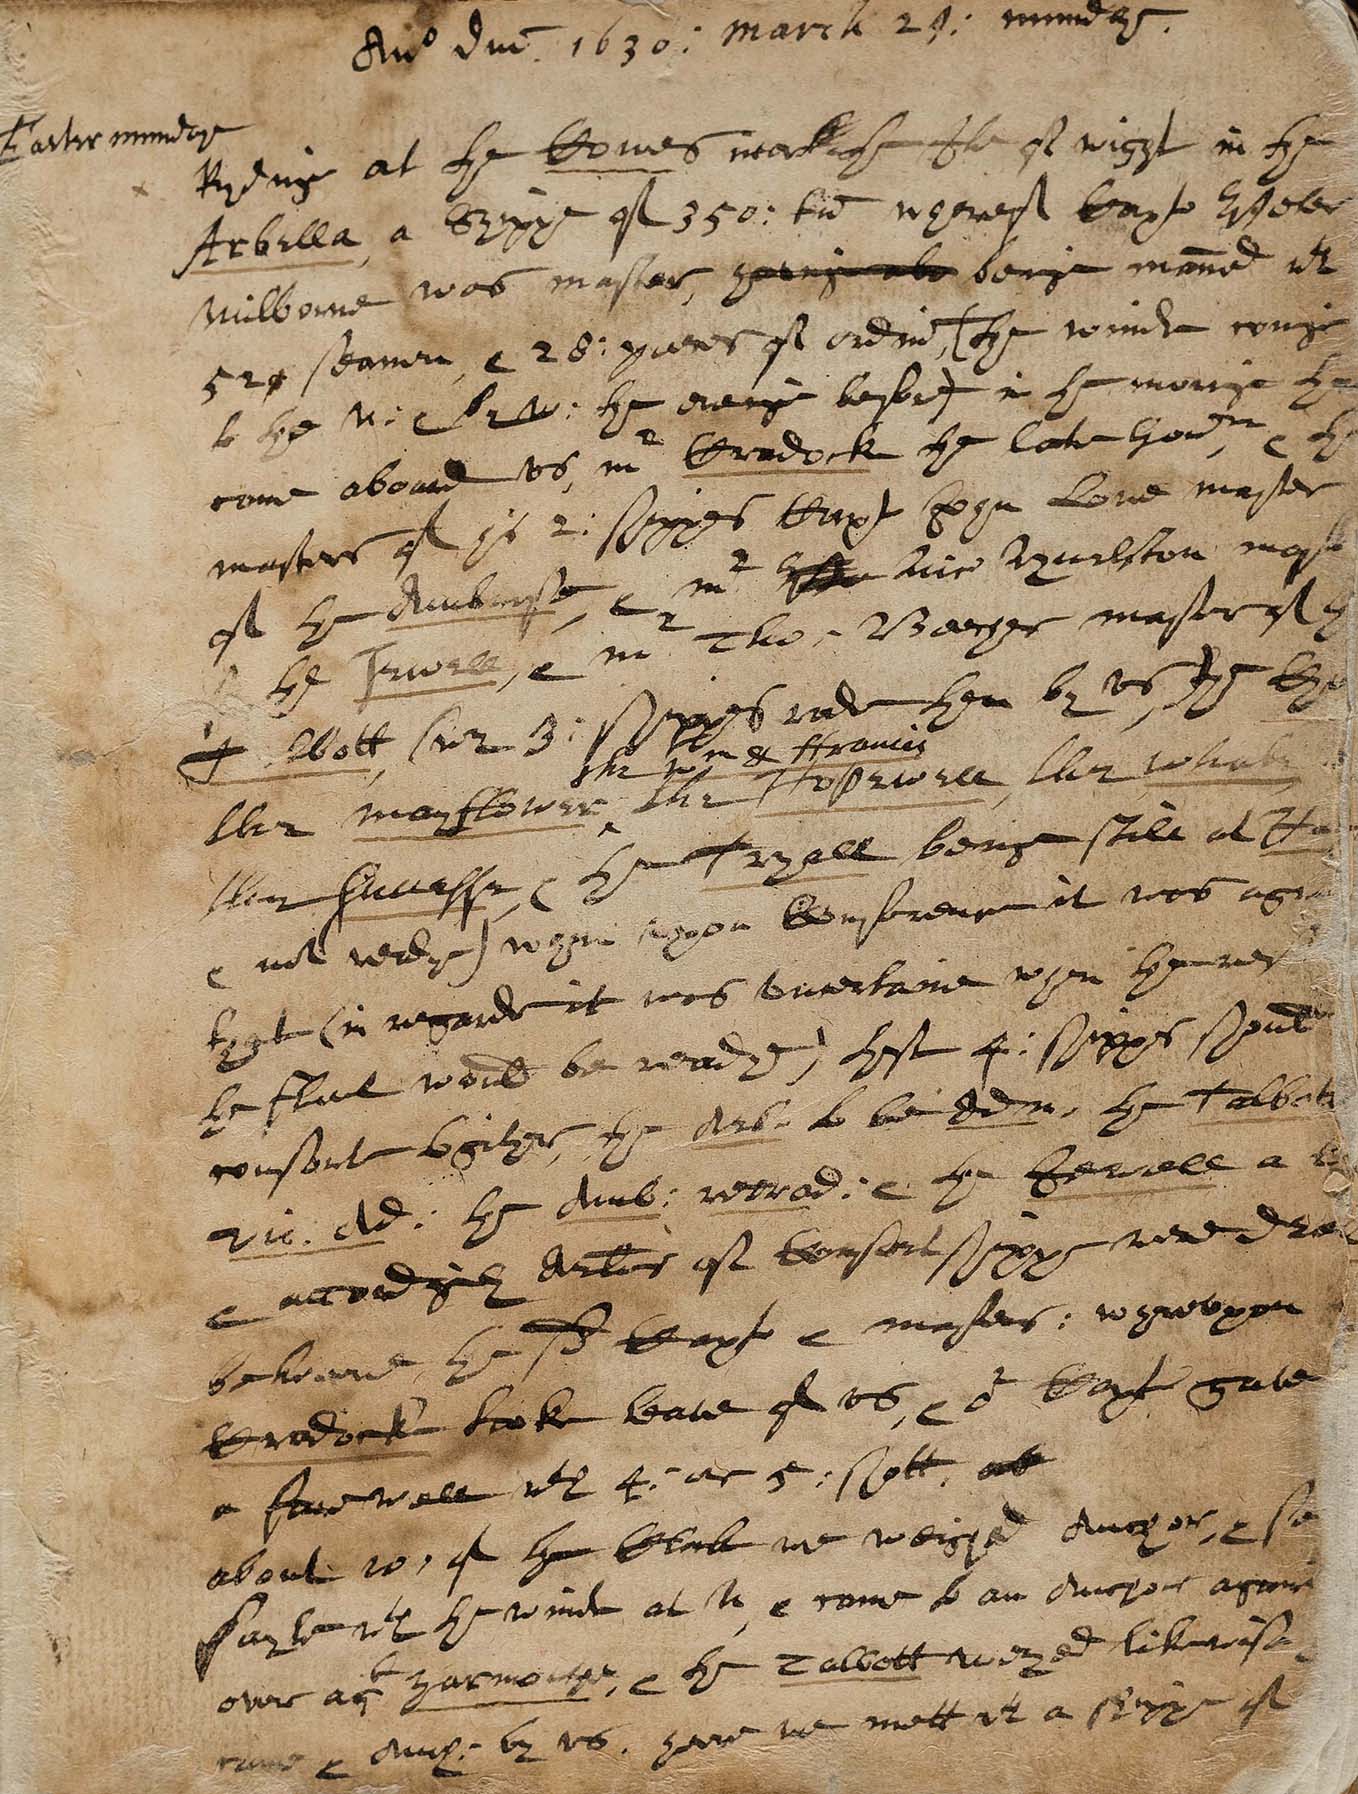 Ano dni. 1630: march 29: munday.
Easter mundaye
Rydinge at the Cowes neere the Ile of wight in the
Arbella, a shippe of 350: tuns wherof Capt Peter
Milborne was master, beinge maned wth
52 seamen, & 28: peeces of ordinance, (the winde cominge
to the N: & by W: the eveninge before) in the morninge there
came aboard us, mr Cradock the late Governr, & the
masters of his 2: shippes Capt John Lowe master
of the Ambrose, & mr Nic Hurlston master
of the Jewell, & mr Tho: Beecher master of the
Talbott, (wch 3: shippes rode then by us, the
the wm & ffrancis
the mayflower, the Hopewell, the whale
the Successe, & the Tryall being still at
& not redye) when upon Conference it was
that (in regarde it was uncertaine when the rest
the fleet would be readye) these 4: shippes should
consorte together, the Arb: to be Adm: the Talbott
vic: Ad: the Amb: rereAd: & the Jewell a
& accordingly Articles of Consortshippe were
betweene the sd Capts & masters: wherupon
Cradock tooke leave of us, & or Capt gave
a farewell wth 4: or 5: shott.
about 10: of the Clock we weighed Anchor, &
Sayle wth the winde at N, & came to an Anchor againe
over agt Yarmouthe, & the Talbott weyed likewise,
came & Anch: by us. here we mett wth a shippe of